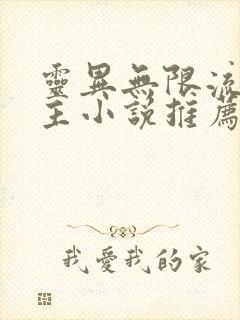 靈異無限流
主小說推薦
我愛我的家